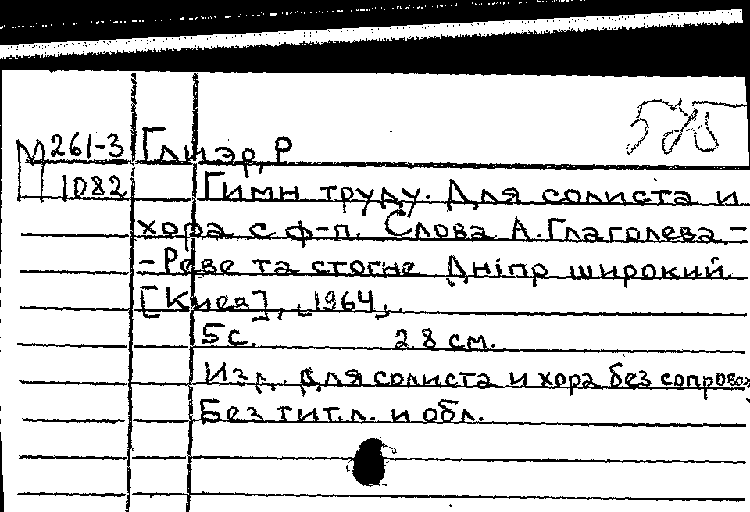 575
М 261-3 Глиэр, Р
1082 Гимн труду. Для солиста и
хора с ф-п. Слова А. Глаголева -
- Реве та стогне Дніпр широкий.
[Киев], 1964,
5 с. 28 см.
Изд. для солиста и хора без сопровож
Без тит.л. и обл.